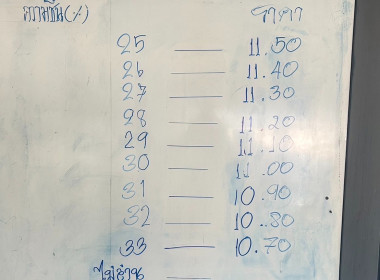 ความชื้น(%) ราคา
25 — 11.50
26 — 11.40
27 — 11.30
28 — 11.20
29 — 11.10
30 — 11.00
31 — 10.90
32 — 10.80
33 — 10.70
ไม่ผ่าน —